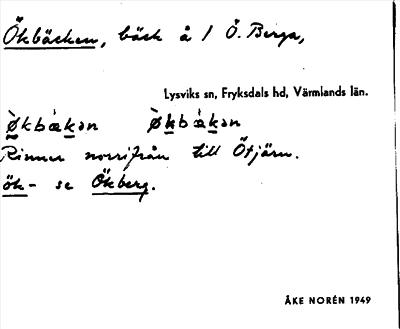 Ökbäcken, bäck å / Ö. Berga,
Lysviks sn, Fryksdals hd, Värmlands län.
Rinner norrifrån till Ötjärn.
ök- se Ökberg.
ÅKE NORÉN 1949